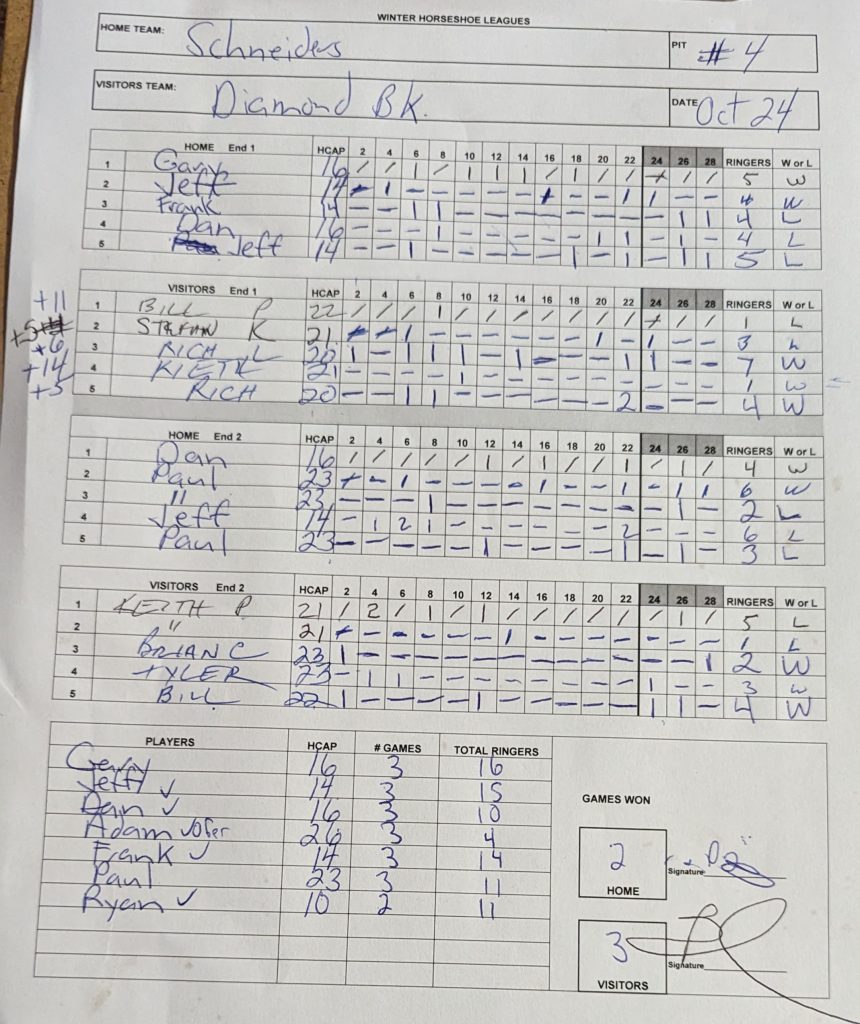 WINTER HORSESHOE LEAGUES
HOME TEAM: Schneiders PIT #4
VISITORS TEAM: Diamond BK. DATE Oct 24
HOME End 1 HCAP 2 4 6 8 10 12 14 16 18 20 22 24 26 28 RINGERS W or L
1 Gary 16 5 W
2 Jeff 14 W
3 Frank 14 4 L
4 Dan 16 4 L
5 Jeff 14 5 L
VISITORS End 1 HCAP 2 4 6 8 10 12 14 16 18 20 22 24 26 28 RINGERS W or L
+11 1 BILL P 22 1 L
+5 2 STEFAN K 21 3 L
+6 3 RICH L 20 7 W
+14 4 KIETH 21 1 W
+5 5 RICH 20 2 4 W
HOME End 2 HCAP 2 4 6 8 10 12 14 16 18 20 22 24 26 28 RINGERS W or L
1 Dan 16 4 W
2 Paul 23 6 W
3 " 23 2 L
4 Jeff 14 2 2 6 L
5 Paul 23 3 L
VISITORS End 2 HCAP 2 4 6 8 10 12 14 16 18 20 22 24 26 28 RINGERS W or L
1 KEITH P. 21 2 5 L
2 " 21 1 L
3 BRIAN C 23 2 W
4 TYLER 23 3 W
5 BILL 22 4 W
PLAYERS HCAP # GAMES TOTAL RINGERS
Gary 16 3 16
Jeff ✓ 14 3 15
Dan ✓ 16 3 10
Adam 26 3 4
Frank ✓ 14 3 14
Paul 23 3 11
Ryan ✓ 10 2 11
GAMES WON
2 HOME Signature
3 VISITORS Signature